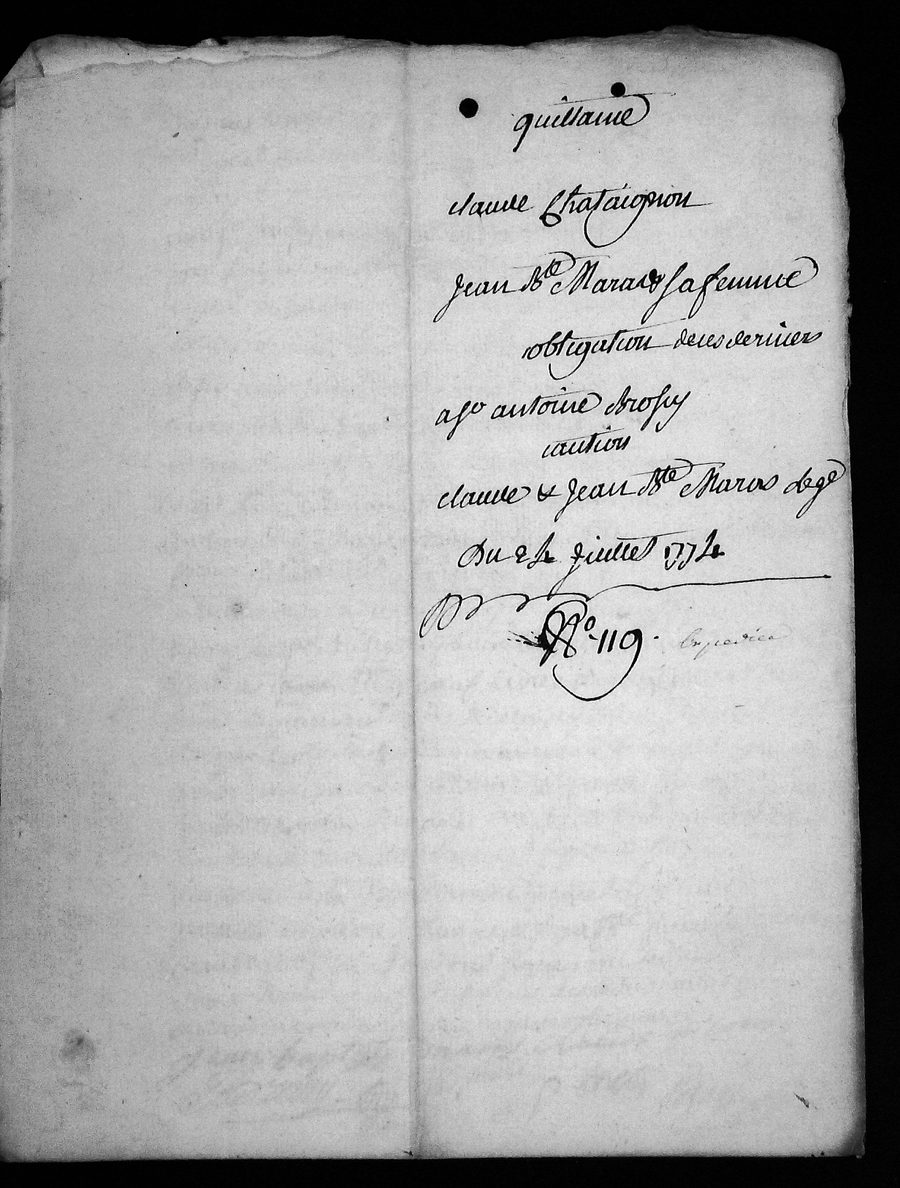 quittance
claude Chataignion
Jean Bte Maras & sa femme
obligation de ces derniers
a Sr antoine Brossy
caution
claude & Jean Bte Maras
Du 24 Juillet 1774
No. 119.
Expediée